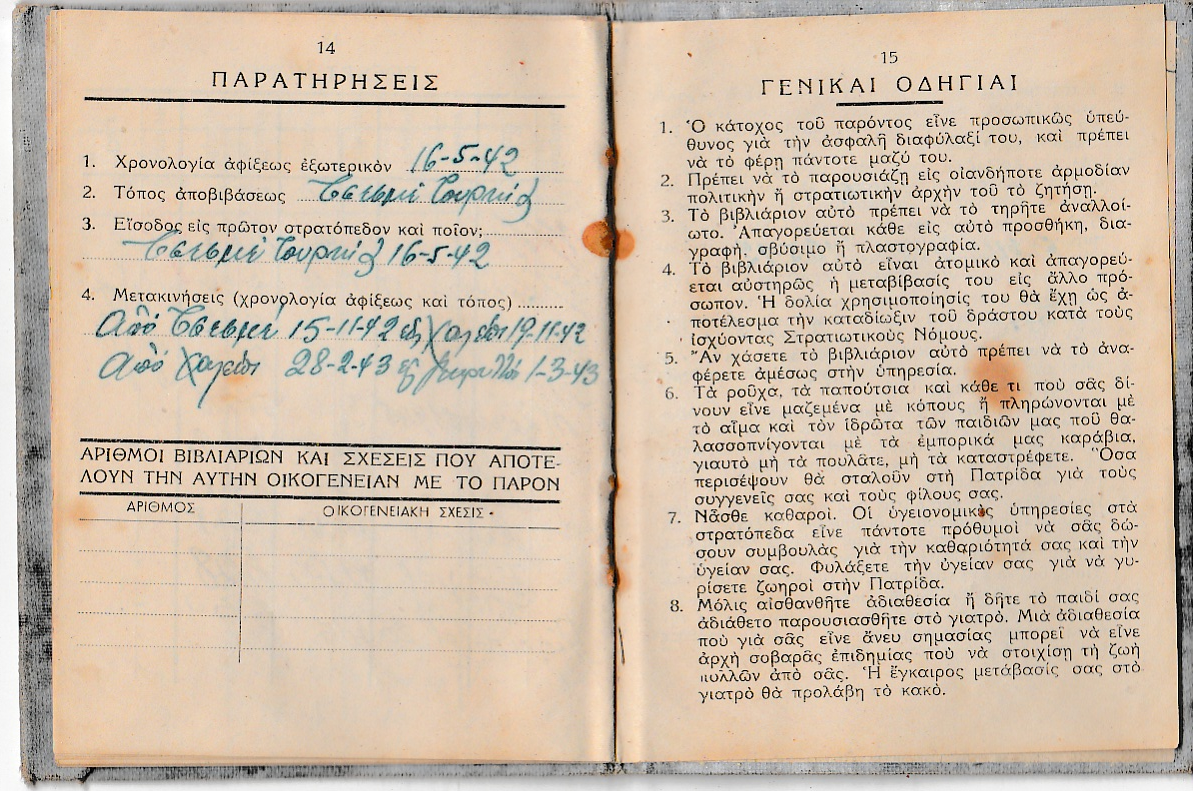 14
ΠΑΡΑΤΗΡΗΣΕΙΣ
1. Χρονολογία ἀφίξεως ἐξωτερικὸν 16-5-42
2. Τόπος ἀποβιβάσεως Τσεσμὲ Τουρκίας
3. Εἴσοδος εἰς πρῶτον στρατόπεδον καὶ ποῖον;
Τσεσμὲ Τουρκίας 16-5-42
4. Μετακινήσεις (χρονολογία ἀφίξεως καὶ τόπος)
Ἀπὸ Τσεσμὲ 15-11-42 εἰς Χαλέπι 19-11-42
Ἀπὸ Χαλέπι 28-2-43 εἰς 1-3-43
ΑΡΙΘΜΟΙ ΒΙΒΛΙΑΡΙΩΝ ΚΑΙ ΣΧΕΣΕΙΣ ΠΟΥ ΑΠΟΤΕ-
ΛΟΥΝ ΤΗΝ ΑΥΤΗΝ ΟΙΚΟΓΕΝΕΙΑΝ ΜΕ ΤΟ ΠΑΡΟΝ
ΑΡΙΘΜΟΣ ΟΙΚΟΓΕΝΕΙΑΚΗ ΣΧΕΣΙΣ
15
ΓΕΝΙΚΑΙ ΟΔΗΓΙΑΙ
1. Ὁ κάτοχος τοῦ παρόντος εἶνε προσωπικῶς ὑπεύ-
θυνος γιὰ τὴν ἀσφαλῆ διαφύλαξί του, καὶ πρέπει
νὰ τὸ φέρῃ πάντοτε μαζύ του.
2. Πρέπει νὰ τὸ παρουσιάζῃ εἰς οἱανδήποτε ἁρμοδίαν
πολιτικὴν ἢ στρατιωτικὴν ἀρχὴν τοῦ τὸ ζητήσῃ.
3. Τὸ βιβλιάριον αὐτὸ πρέπει νὰ τὸ τηρῆτε ἀναλλοί-
ωτο. Ἀπαγορεύεται κάθε εἰς αὐτὸ προσθήκη, δια-
γραφή, σβύσιμο ἢ πλαστογραφία.
4. Τὸ βιβλιάριον αὐτὸ εἶναι ἀτομικὸ καὶ ἀπαγορεύ-
εται αὐστηρῶς ἡ μεταβίβασίς του εἰς ἄλλο πρό-
σωπον. Ἡ δολία χρησιμοποίησίς του θὰ ἔχῃ ὡς ἀ-
ποτέλεσμα τὴν καταδίωξιν τοῦ δράστου κατὰ τοὺς
ἰσχύοντας Στρατιωτικοὺς Νόμους.
5. Ἂν χάσετε τὸ βιβλιάριον αὐτὸ πρέπει νὰ τὸ ἀνα-
φέρετε ἀμέσως στὴν ὑπηρεσία.
6. Τὰ ροῦχα, τὰ παπούτσια καὶ κάθε τι ποὺ σᾶς δί-
νουν εἶνε μαζεμένα μὲ κόπους ἢ πληρώνονται μὲ
τὸ αἷμα καὶ τὸν ἱδρῶτα τῶν παιδιῶν μας ποῦ θα-
λασσοπνίγονται μὲ τὰ ἐμπορικά μας καράβια,
γιαυτὸ μὴ τὰ πουλᾶτε, μὴ τὰ καταστρέφετε. Ὅσα
περισέψουν θὰ σταλοῦν στὴ Πατρίδα γιὰ τοὺς
συγγενεῖς σας καὶ τοὺς φίλους σας.
7. Νᾶσθε καθαροί. Οἱ ὑγειονομικὲς ὑπηρεσίες στὰ
στρατόπεδα εἶνε πάντοτε πρόθυμοι νὰ σᾶς δώ-
σουν συμβουλὰς γιὰ τὴν καθαριότητά σας καὶ τὴν
ὑγείαν σας. Φυλάξετε τὴν ὑγείαν σας γιὰ νὰ γυ-
ρίσετε ζωηροὶ στὴν Πατρίδα.
8. Μόλις αἰσθανθῆτε ἀδιαθεσία ἢ δῆτε τὸ παιδί σας
ἀδιάθετο παρουσιασθῆτε στὸ γιατρό. Μιὰ ἀδιαθεσία
ποὺ γιὰ σᾶς εἶνε ἄνευ σημασίας μπορεῖ νὰ εἶνε
ἀρχὴ σοβαρᾶς ἐπιδημίας ποὺ νὰ στοιχίσῃ τὴ ζωὴ
πολλῶν ἀπὸ σᾶς. Ἡ ἔγκαιρος μετάβασίς σας στὸ
γιατρὸ θὰ προλάβῃ τὸ κακό.